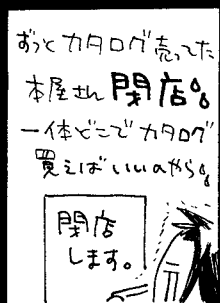 ずっとカタログ売ってた
本屋さん閉店。
一体どこでカタログ
買えばいいのやら。
閉店
します。